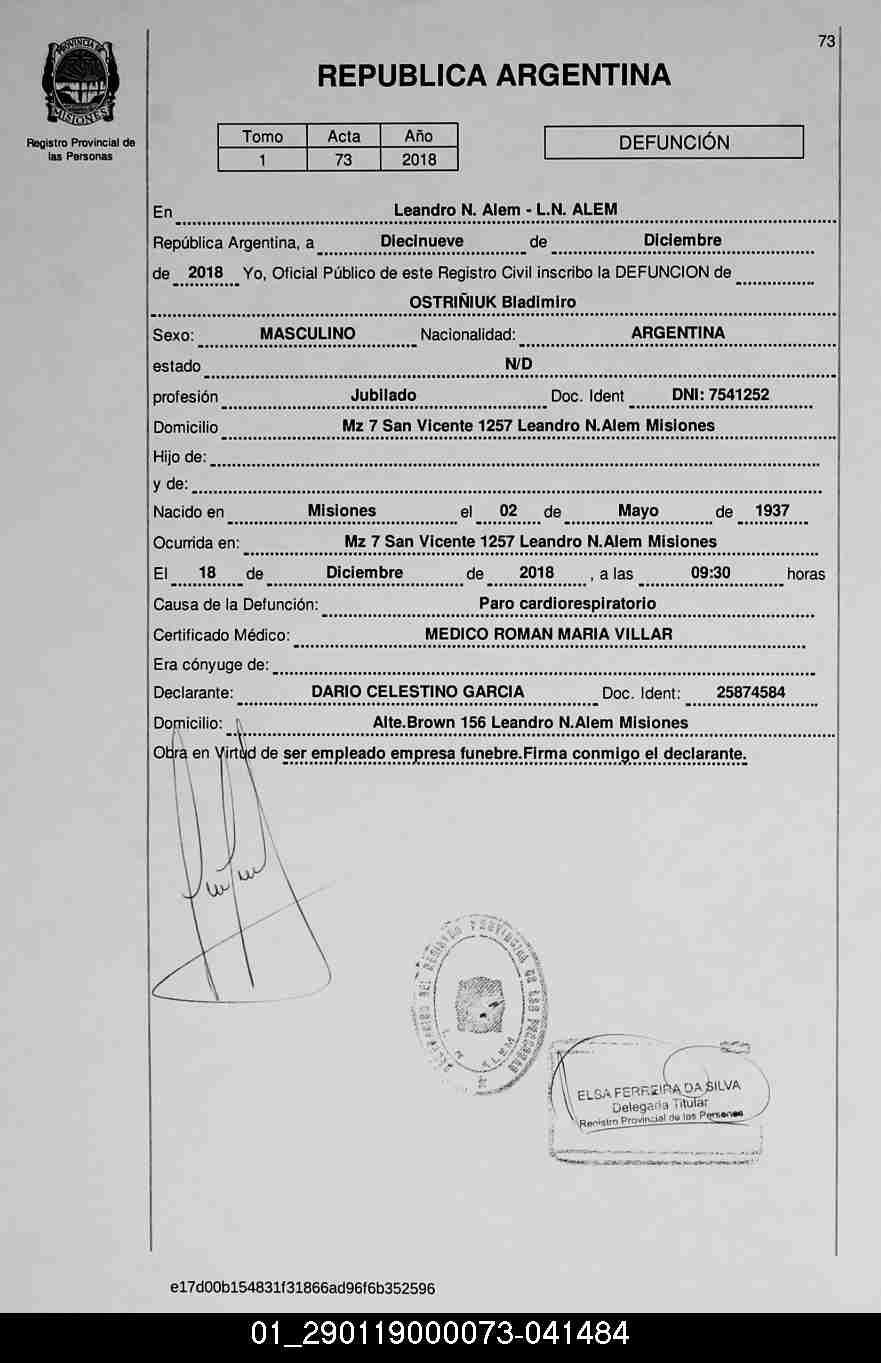 73
PROVINCIA DE
MISIONES
Registro Provincial de
las Personas
REPUBLICA ARGENTINA
Tomo Acta Año
1 73 2018
DEFUNCIÓN
En Leandro N. Alem - L.N. ALEM
República Argentina, a Diecinueve de Diciembre
de 2018 Yo, Oficial Público de este Registro Civil inscribo la DEFUNCION de
OSTRIÑIUK Bladimiro
Sexo: MASCULINO Nacionalidad: ARGENTINA
estado N/D
profesión Jubilado Doc. Ident DNI: 7541252
Domicilio Mz 7 San Vicente 1257 Leandro N.Alem Misiones
Hijo de:
y de:
Nacido en Misiones el 02 de Mayo de 1937
Ocurrida en: Mz 7 San Vicente 1257 Leandro N.Alem Misiones
El 18 de Diciembre de 2018 , a las 09:30 horas
Causa de la Defunción: Paro cardiorespiratorio
Certificado Médico: MEDICO ROMAN MARIA VILLAR
Era cónyuge de:
Declarante: DARIO CELESTINO GARCIA Doc. Ident: 25874584
Domicilio: Alte.Brown 156 Leandro N.Alem Misiones
Obra en Virtud de ser empleado empresa funebre.Firma conmigo el declarante.
REGISTRO PROVINCIAL DE LAS PERSONAS
ALEM
ELSA FERREIRA DA SILVA
Delegada Titular
Registro Provincial de las Personas
e17d00b154831f31866ad96f6b352596
01_290119000073-041484